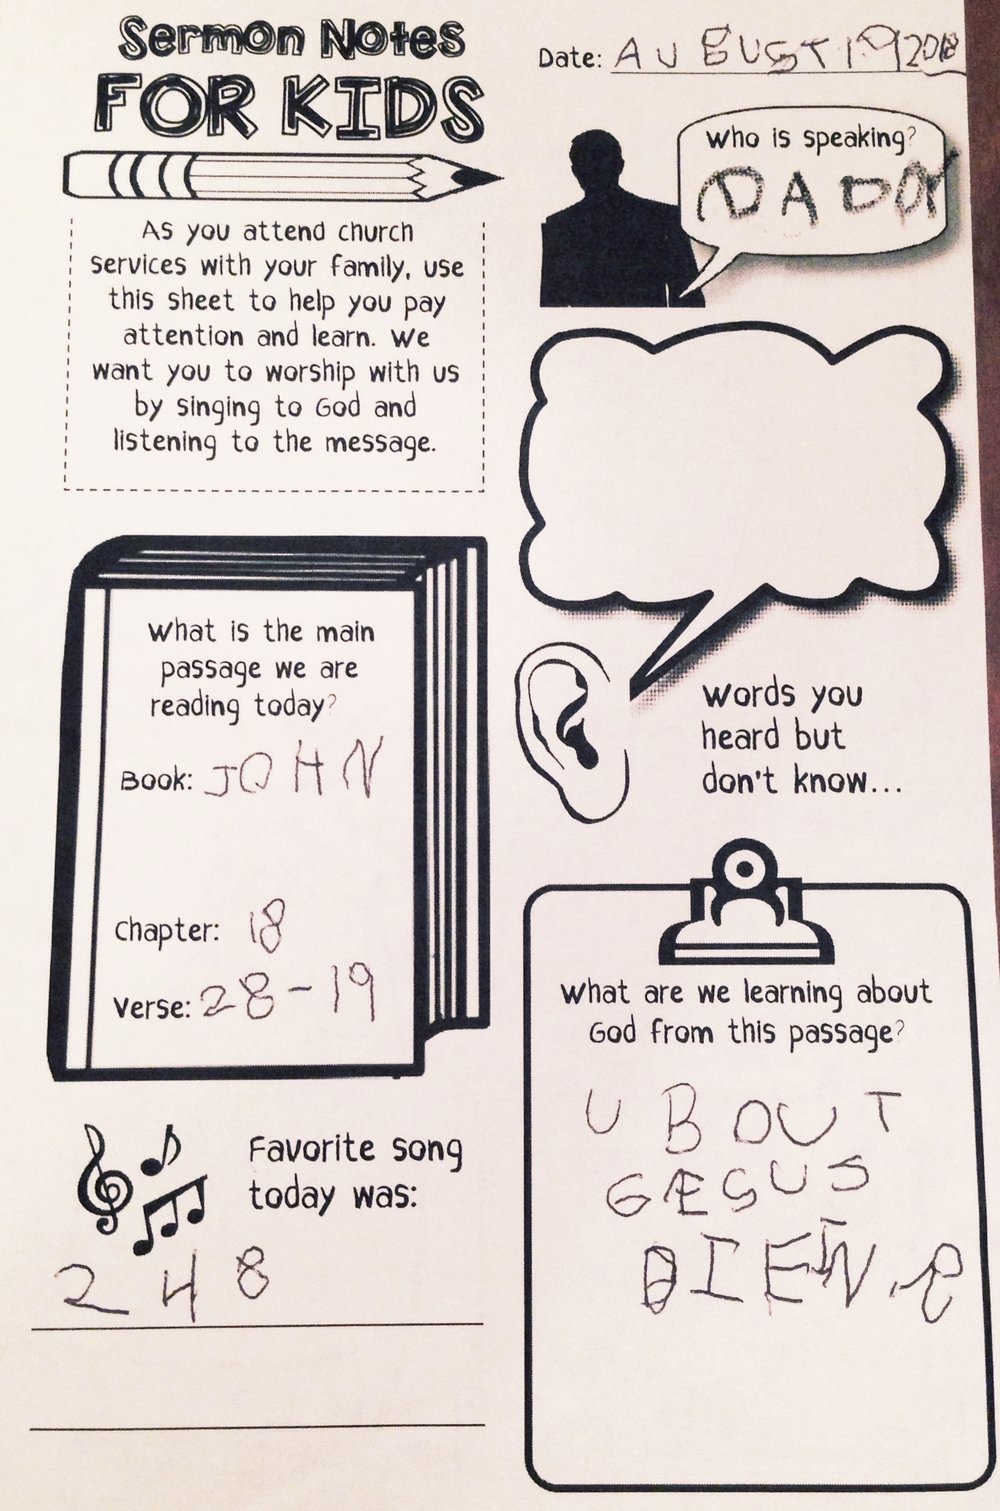 Sermon Notes
FOR KIDS
As you attend church
services with your family, use
this sheet to help you pay
attention and learn. We
want you to worship with us
by singing to God and
listening to the message.
Date: AUGUST 19 2018
Who is speaking?
DADDY
Words you
heard but
don't know...
What is the main
passage we are
reading today?
Book: JOHN
Chapter: 18
Verse: 28-19
Favorite song
today was:
248
What are we learning about
God from this passage?
UBOUT
GESUS